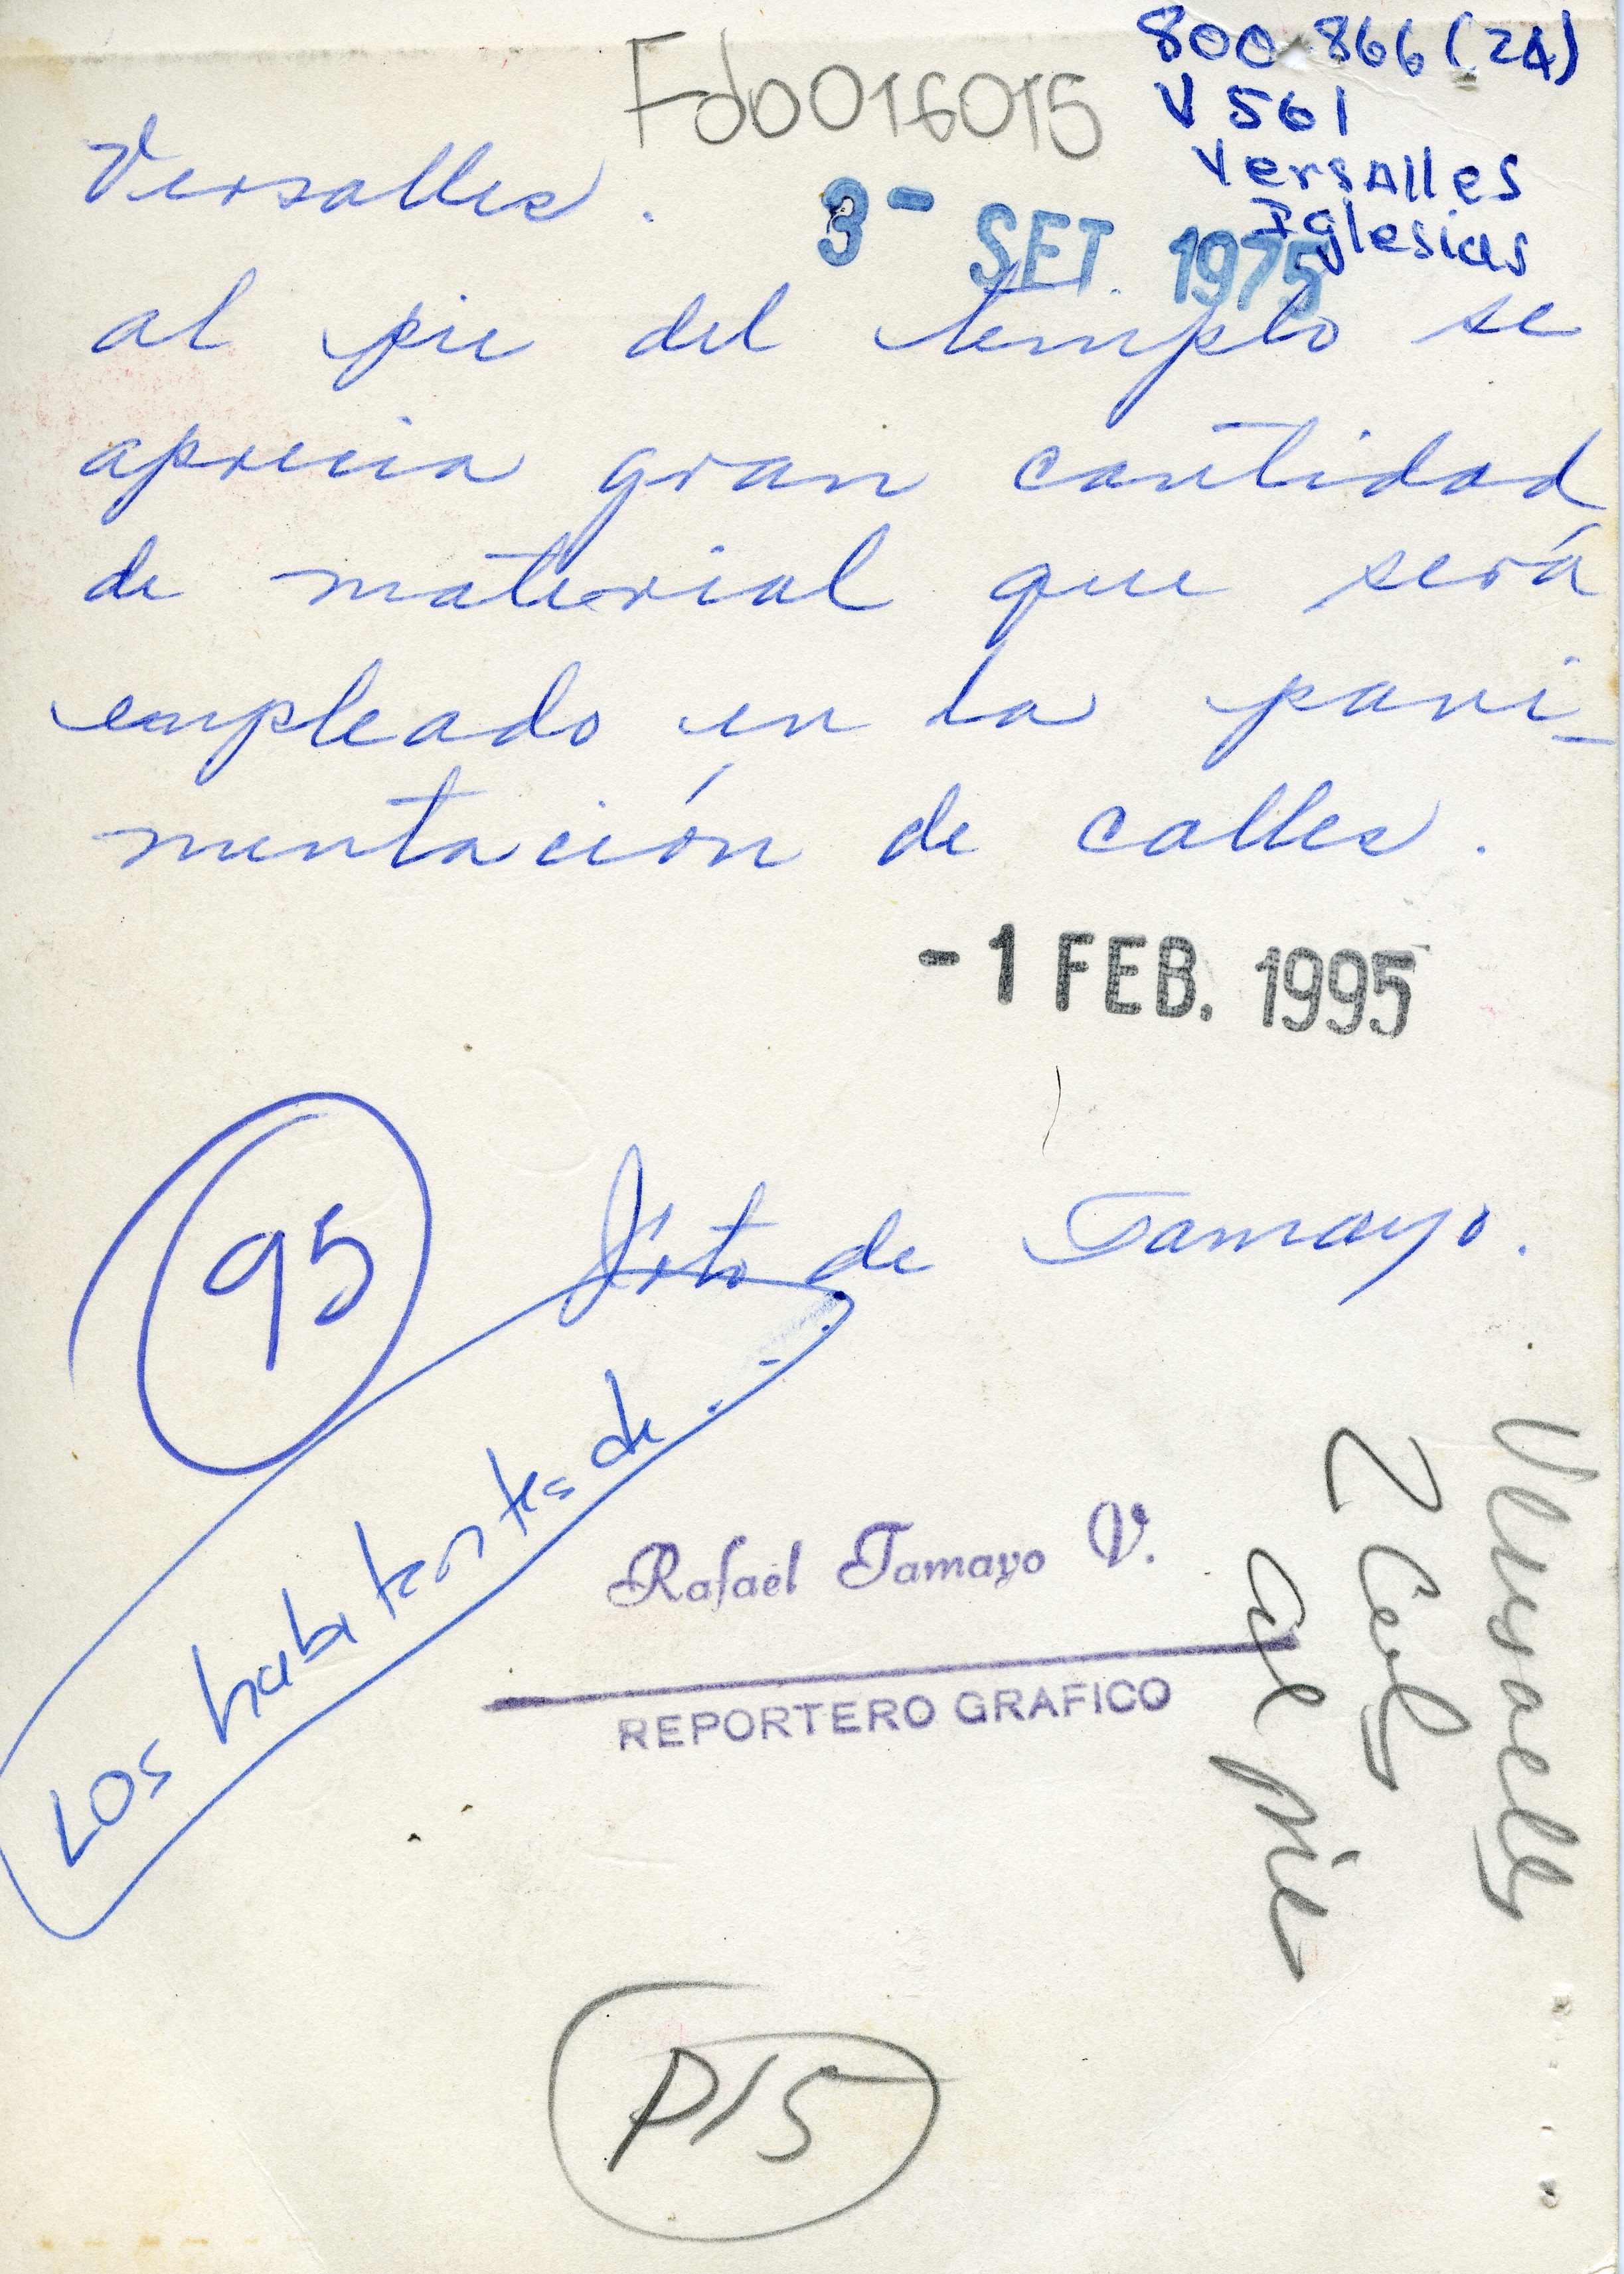 800-866 (24)
V 561
Versalles
Iglesias
Fdo016015
Versalles.
3- SET. 1975
al pie del templo se
aprecia gran cantidad
de material que será
empleado en la pavi-
mentación de calles.
-1 FEB. 1995
95
Foto de Tamayo.
Los habitantes de . - .
Rafael Tamayo V.
REPORTERO GRAFICO
Versalles
2 Col
al pie
P15